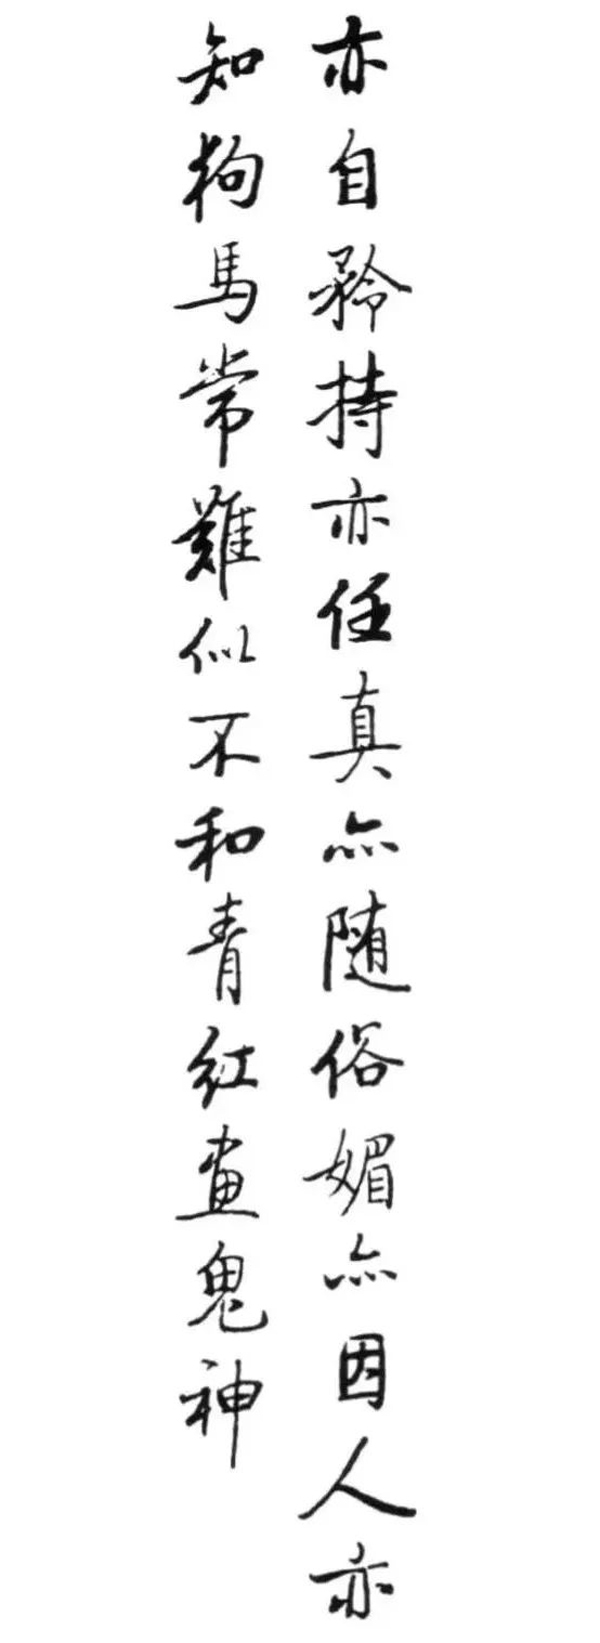 亦自矜持亦任真亦随俗媚亦因人亦
知狗馬常難似不和青红畫鬼神